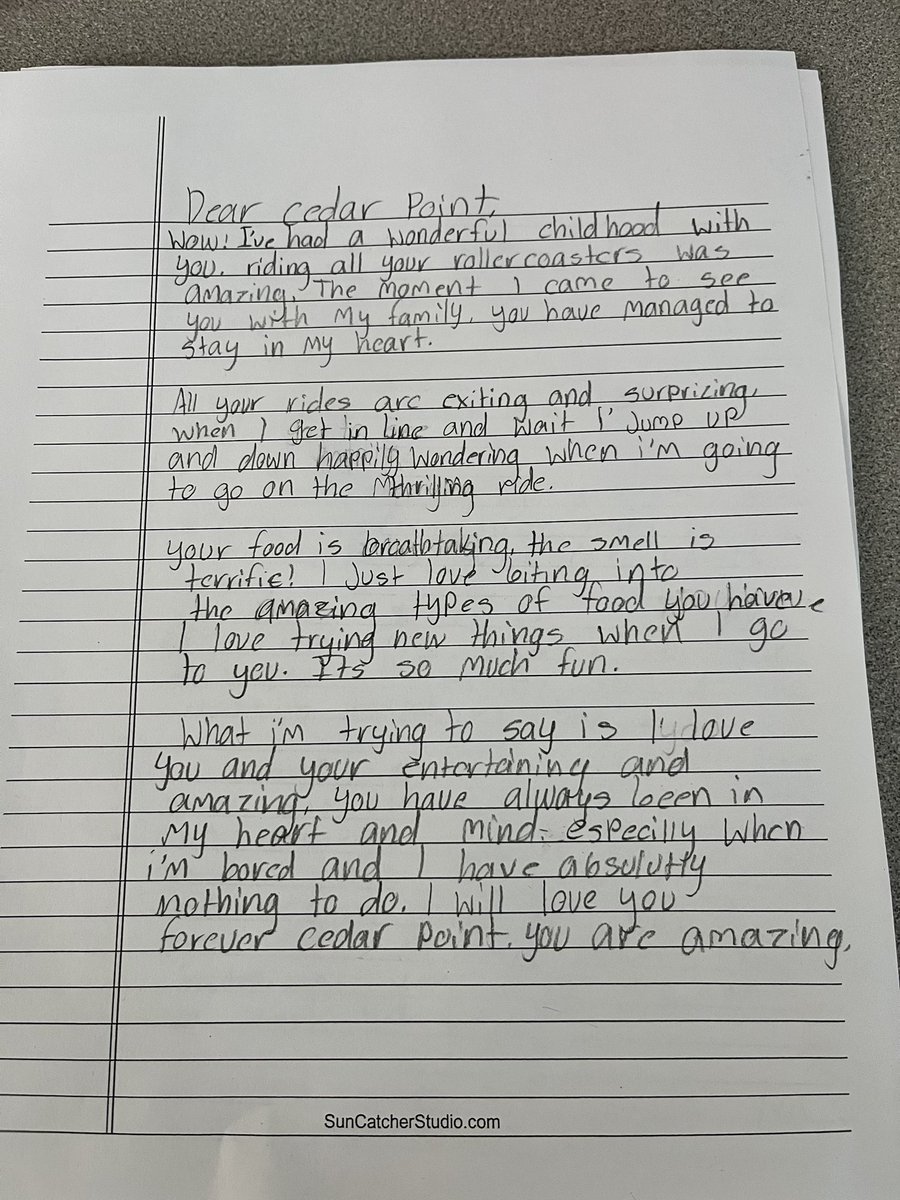 Dear cedar Point,
Wow! I've had a wonderful childhood with
you. riding all your roller coasters was
amazing. The moment I came to see
you with my family, you have managed to
stay in my heart.
All your rides are exiting and surprizing,
when I get in line and wait I jump up
and down happily wondering when i'm going
to go on the thrilling ride.
your food is breathtaking, the smell is
terrific! I just love biting into
the amazing types of food you have
I love trying new things when I go
to you. Its so much fun.
What i'm trying to say is I love
you and your entertaining and
amazing, you have always been in
my heart and mind. especilly when
i'm bored and I have absolutly
nothing to do. I will love you
forever cedar point. you are amazing.
SunCatcherStudio.com